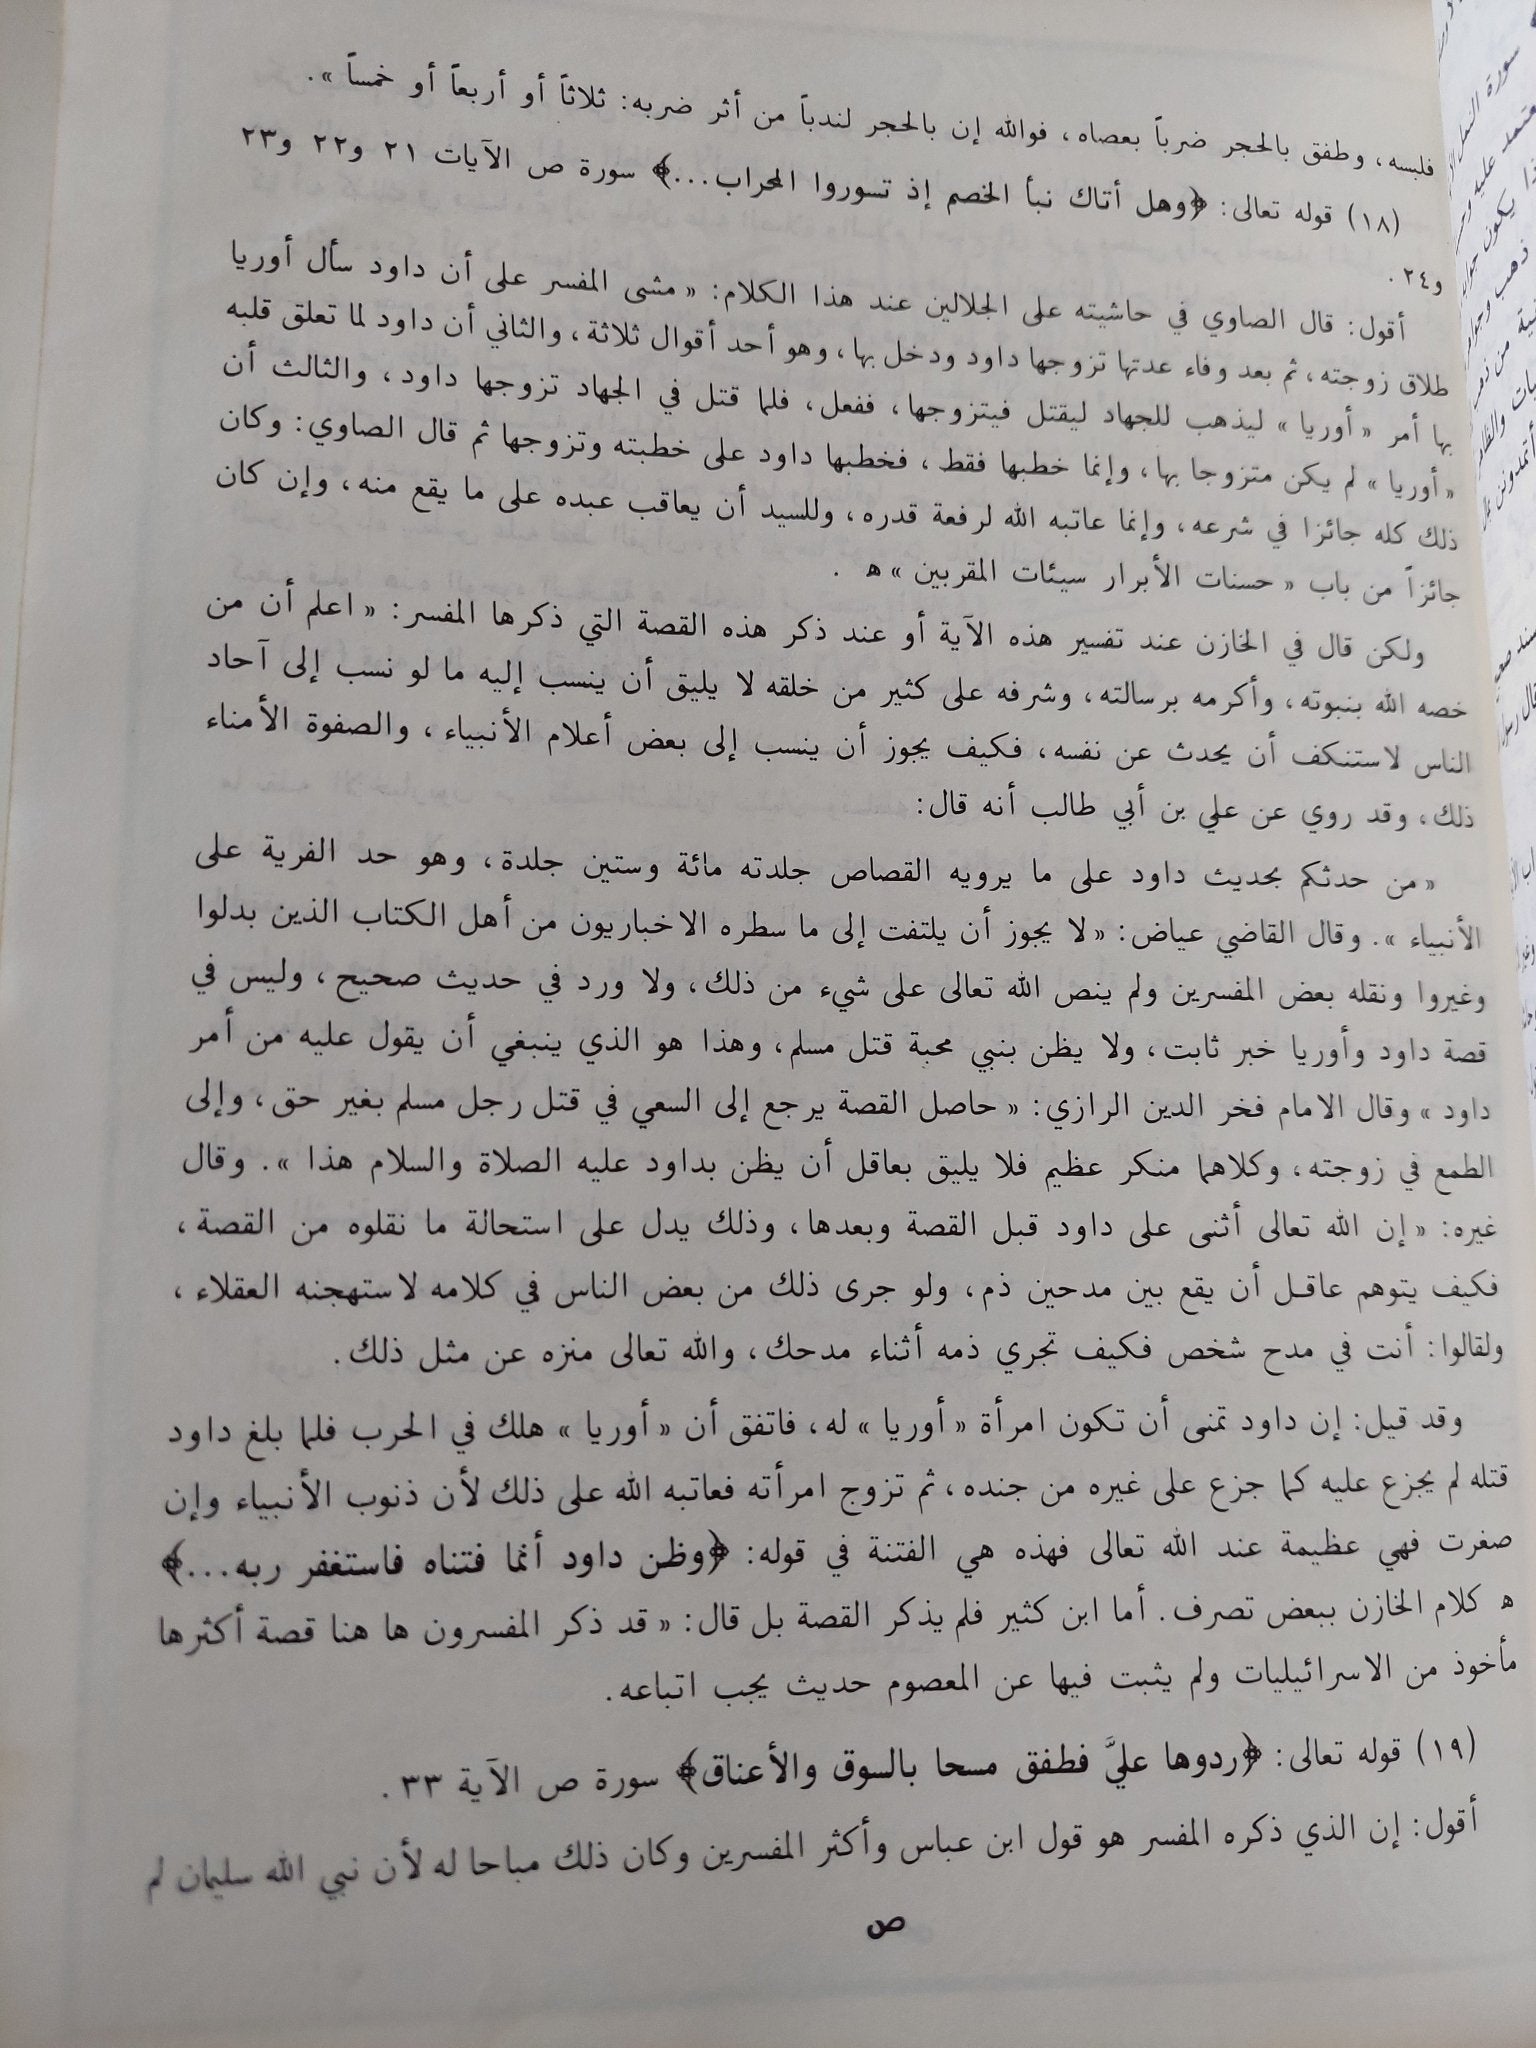 فلبسه، وطفق بالحجر ضرباً بعصاه، فوالله إن بالحجر لندباً من أثر ضربه: ثلاثاً أو أربعاً أو خمساً ».
(١٨) قوله تعالى: ﴿وهل أتاك نبأ الخصم إذ تسوروا المحراب...﴾ سورة ص الآيات ٢١ و٢٢ و٢٣
و٢٤.
أقول: قال الصاوي في حاشيته على الجلالين عند هذا الكلام: « مشى المفسر على أن داود سأل أوريا
طلاق زوجته، ثم بعد وفاء عدتها تزوجها داود ودخل بها، وهو أحد أقوال ثلاثة، والثاني أن داود لما تعلق قلبه
بها أمر « أوريا » ليذهب للجهاد ليقتل فيتزوجها، ففعل، فلما قتل في الجهاد تزوجها داود، والثالث أن
« أوريا » لم يكن متزوجا بها، وإنما خطبها فقط، فخطبها داود على خطبته وتزوجها ثم قال الصاوي: وكان
ذلك كله جائزا في شرعه، وإنما عاتبه الله لرفعة قدره، وللسيد أن يعاقب عبده على ما يقع منه، وإن كان
جائزاً من باب « حسنات الأبرار سيئات المقربين » ه .
ولكن قال في الخازن عند تفسير هذه الآية أو عند ذكر هذه القصة التي ذكرها المفسر: « اعلم أن من
خصه الله بنبوته، وأكرمه برسالته، وشرفه على كثير من خلقه لا يليق أن ينسب إليه ما لو نسب إلى آحاد
الناس لاستنكف أن يحدث عن نفسه، فكيف يجوز أن ينسب إلى بعض أعلام الأنبياء، والصفوة الأمناء
ذلك، وقد روي عن علي بن أبي طالب أنه قال:
« من حدثكم بحديث داود على ما يرويه القصاص جلدته مائة وستين جلدة، وهو حد الفرية على
الأنبياء ». وقال القاضي عياض: « لا يجوز أن يلتفت إلى ما سطره الاخباريون من أهل الكتاب الذين بدلوا
وغيروا ونقله بعض المفسرين ولم ينص الله تعالى على شيء من ذلك، ولا ورد في حديث صحيح، وليس في
قصة داود وأوريا خبر ثابت، ولا يظن بنبي محبة قتل مسلم، وهذا هو الذي ينبغي أن يقول عليه من أمر
داود » وقال الامام فخر الدين الرازي: « حاصل القصة يرجع إلى السعي في قتل رجل مسلم بغير حق، وإلى
الطمع في زوجته، وكلاهما منكر عظيم فلا يليق بعاقل أن يظن بداود عليه الصلاة والسلام هذا ». وقال
غيره: « إن الله تعالى أثنى على داود قبل القصة وبعدها، وذلك يدل على استحالة ما نقلوه من القصة،
فكيف يتوهم عاقل أن يقع بين مدحين ذم، ولو جرى ذلك من بعض الناس في كلامه لاستهجنه العقلاء،
ولقالوا: أنت في مدح شخص فكيف تجري ذمه أثناء مدحك، والله تعالى منزه عن مثل ذلك.
وقد قيل: إن داود تمنى أن تكون امرأة « أوريا » له، فاتفق أن « أوريا » هلك في الحرب فلما بلغ داود
قتله لم يجزع عليه كما جزع على غيره من جنده، ثم تزوج امرأته فعاتبه الله على ذلك لأن ذنوب الأنبياء وإن
صغرت فهي عظيمة عند الله تعالى فهذه هي الفتنة في قوله: ﴿وظن داود أنما فتناه فاستغفر ربه...﴾
ه كلام الخازن ببعض تصرف. أما ابن كثير فلم يذكر القصة بل قال: « قد ذكر المفسرون ها هنا قصة أكثرها
مأخوذ من الاسرائيليات ولم يثبت فيها عن المعصوم حديث يجب اتباعه.
(١٩) قوله تعالى: ﴿ردوها عليَّ فطفق مسحا بالسوق والأعناق﴾ سورة ص الآية ٣٣.
أقول: إن الذي ذكره المفسر هو قول ابن عباس وأكثر المفسرين وكان ذلك مباحا له لأن نبي الله سليمان لم
ص